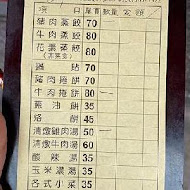 項目 單價 數量 金額
豬肉蒸餃 70
牛肉蒸餃 80
花素蒸餃 80
鍋貼 70
豬肉捲餅 70
牛肉捲餅 80
蔥油餅 35
烙餅 45
清燉雞肉湯 50
清燉牛肉湯 60
酸辣湯 35
玉米濃湯 35
各式小菜 35